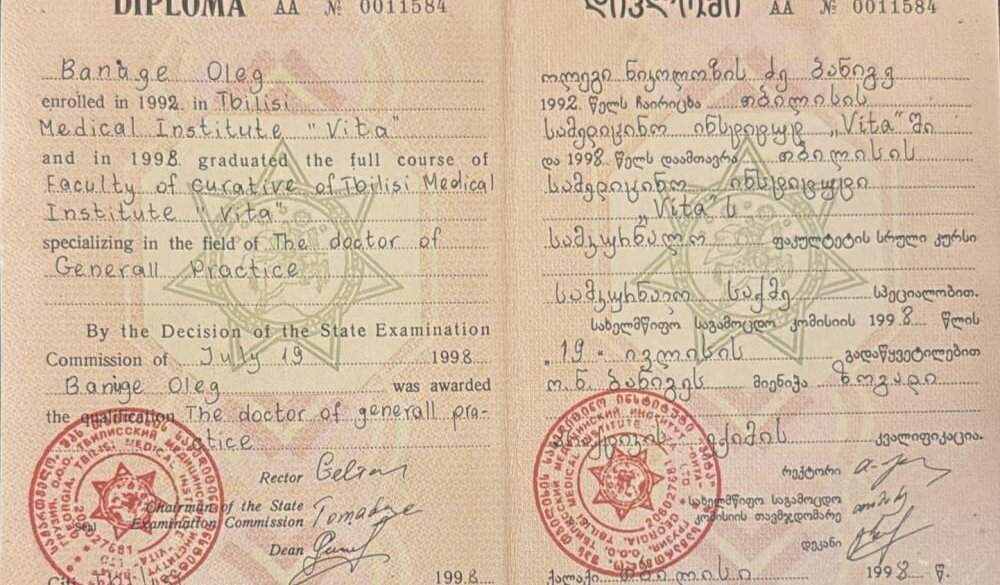 DIPLOMA AA № 0011584
Banige Oleg
enrolled in 1992 in Tbilisi
Medical Institute "Vita"
and in 1998 graduated the full course of
Faculty of curative of Tbilisi Medical
Institute "Vita"
specializing in the field of The doctor of
Generall Practice
By the Decision of the State Examination
Commission of July 19 1998
Banige Oleg was awarded
the qualification The doctor of generall pra-
ctice
Rector
Chairman of the State
Seal Examination Commission
Dean
1998
დიპლომი AA № 0011584
ოლეგი ნიკოლოზის ძე ბანიგე
1992 წელს ჩაირიცხა თბილისის
სამედიცინო ინსტიტუტ „Vita"ში
და 1998 წელს დაამთავრა თბილისის
სამედიცინო ინსტიტუტი
„Vita"ს
სამკურნალო ფაკულტეტის სრული კურსი
სამკურნალო საქმე სპეციალობით.
სახელმწიფო საგამოცდო კომისიის 1998 წლის
„19" ივლისის გადაწყვეტილებით
ო.ნ. ბანიგეს მიენიჭა ზოგადი
პრაქტიკის ექიმის კვალიფიკაცია.
რექტორი
სახელმწიფო საგამოცდო
კომისიის თავმჯდომარე
დეკანი
ქალაქი თბილისი 1998 წ.